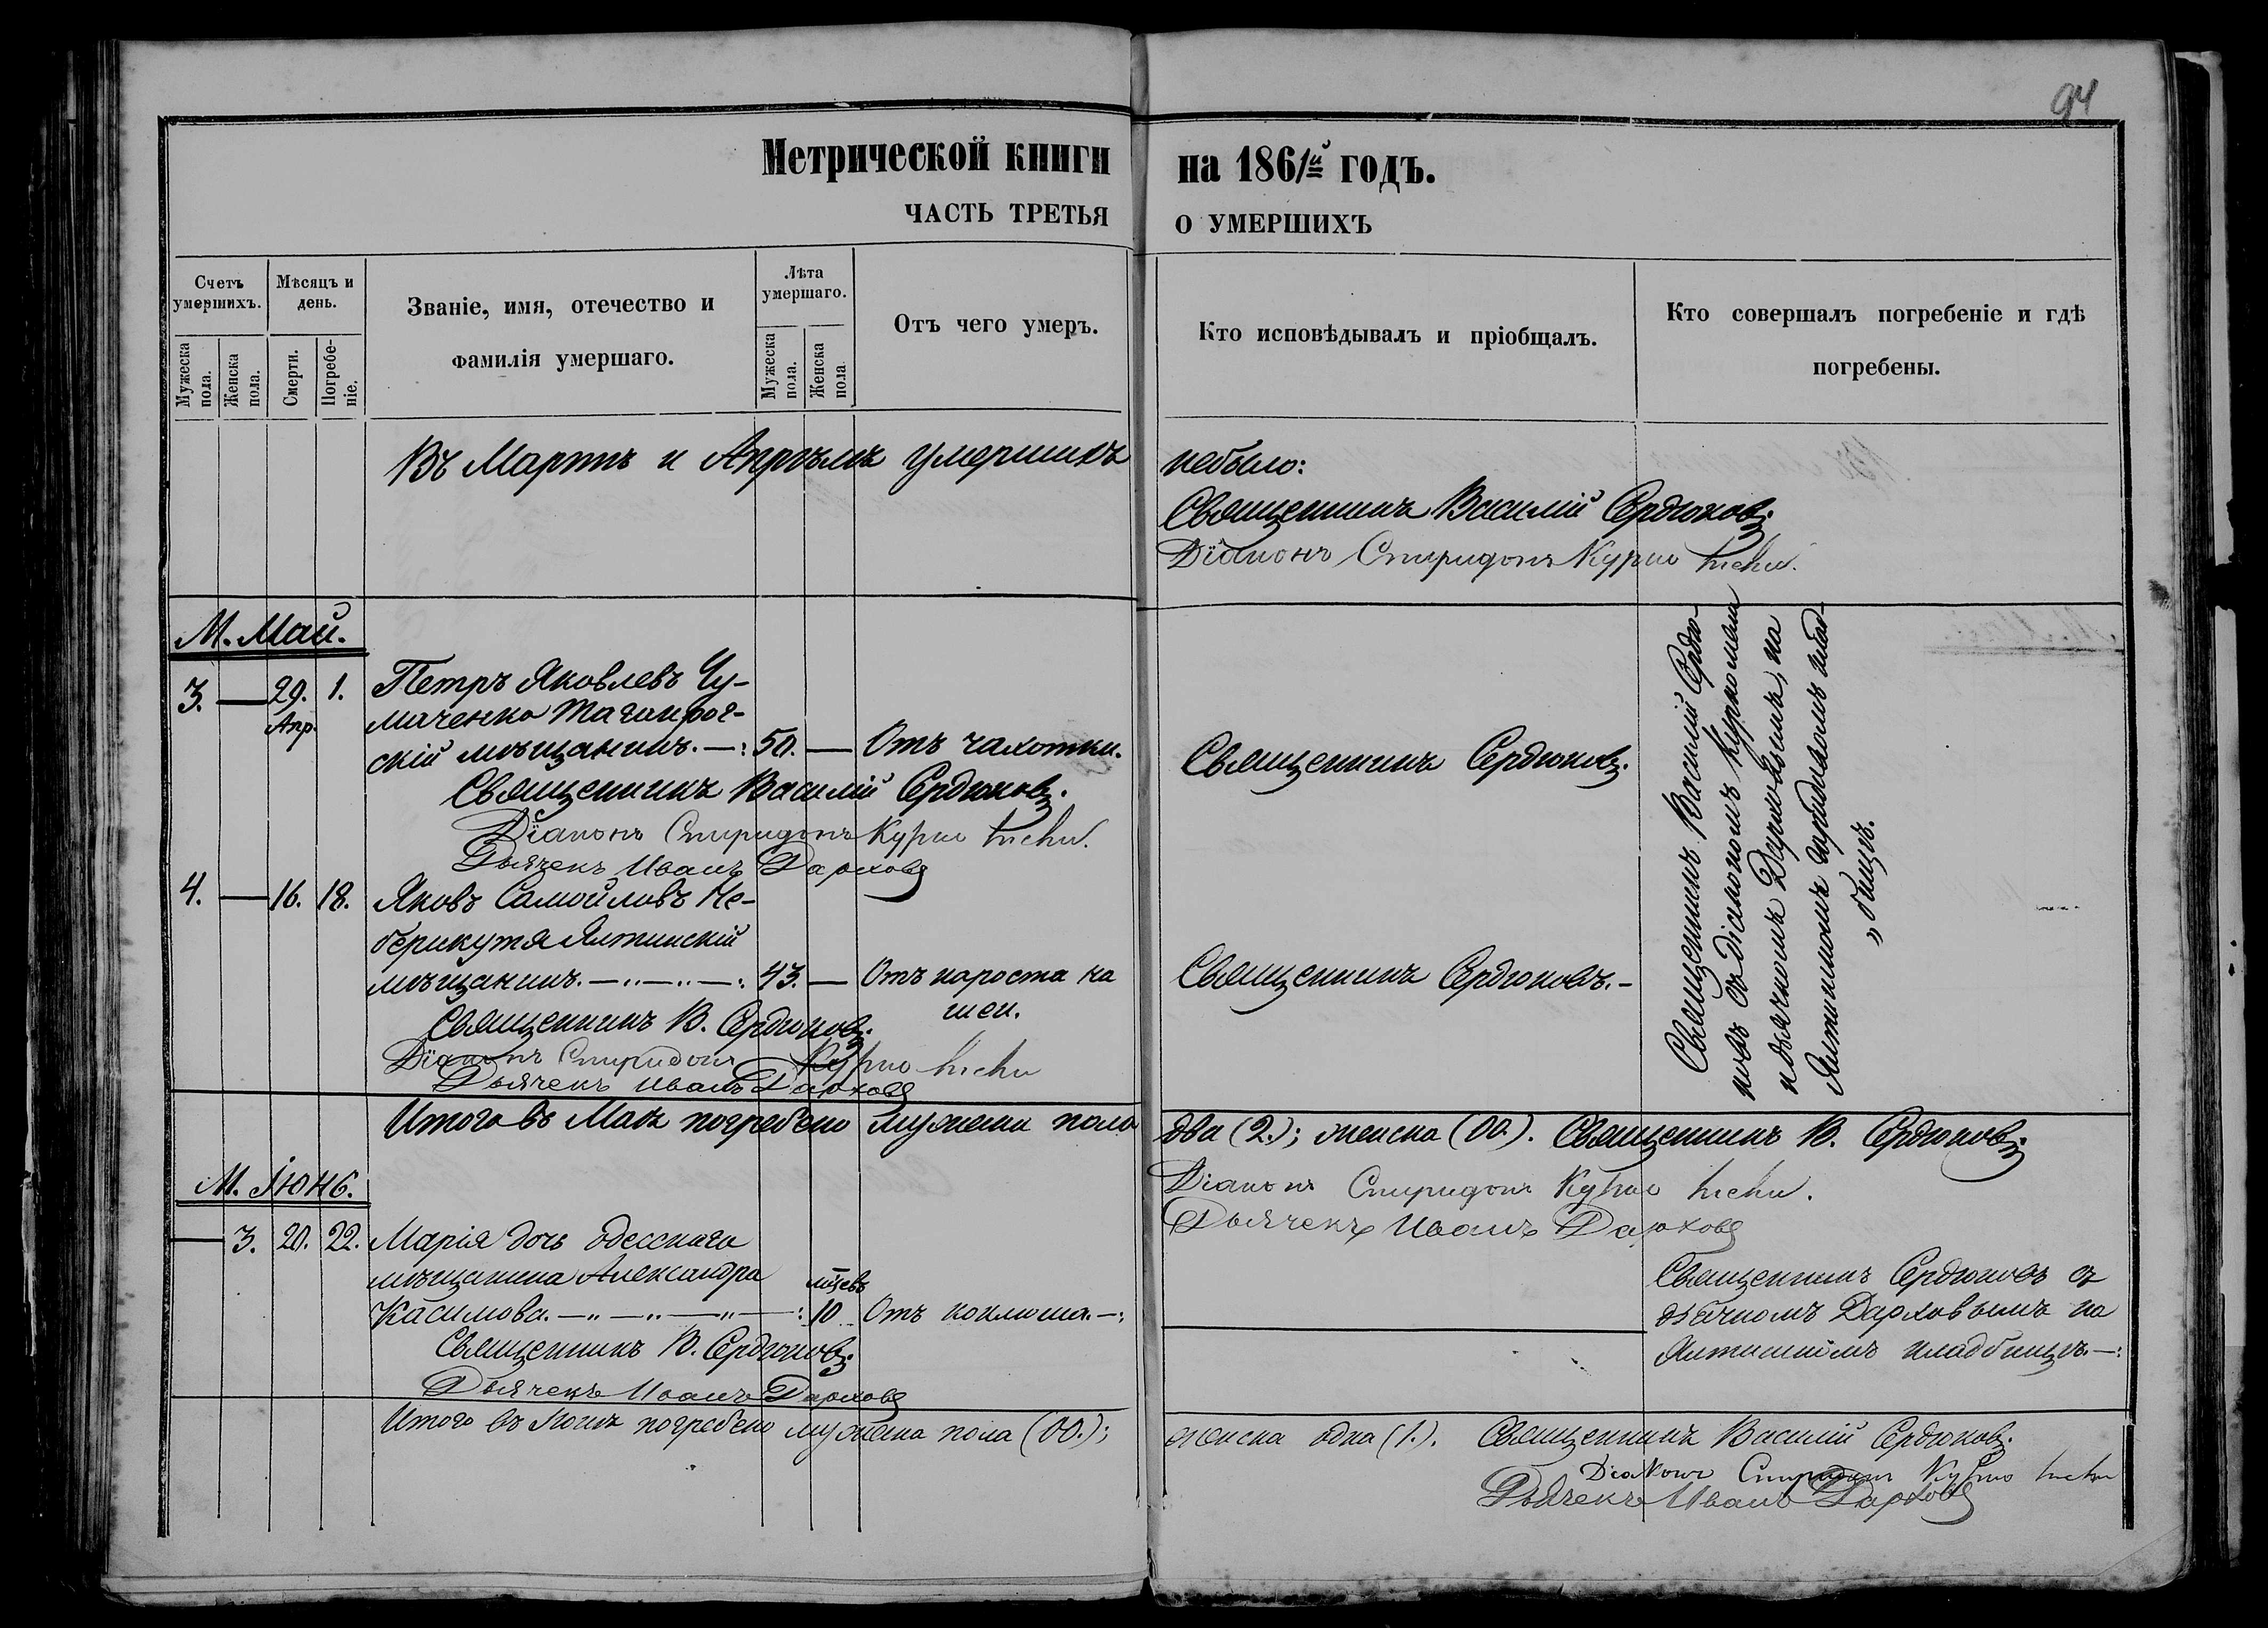 94
Метрической книги на 1861й годъ.
ЧАСТЬ ТРЕТЬЯ О УМЕРШИХЪ
Счетъ умершихъ.
Мужеска пола.
Женска пола.
Мѣсяцъ и день.
Смерти.
Погребеніе.
Званіе, имя, отечество и фамилія умершаго.
Лѣта умершаго.
Мужеска пола.
Женска пола
Отъ чего умеръ.
Кто исповѣдывалъ и пріобщалъ.
Кто совершалъ погребеніе и гдѣ погребены.
Въ Мартѣ и Апрѣлѣ умершихъ небыло:
Священникъ Василій Сердюковъ.
Діаконъ Спиридонъ
М. Май.
3. — 29. Апр. 1. Петръ Яковлевъ Чу-
маченко Таганрог-
скій мѣщанинъ. —: 50. — Отъ чахотки.
Священникъ Сердюковъ.
Священникъ Василій Сердюковъ.
Діаконъ Спиридонъ
Дьячекъ Иванъ Дарховъ
4. — 16. 18. Яковъ Самойловъ Не-
берикутя Ялтинскій
мѣщанинъ. —"—"—: 43. — Отъ нароста на
шеи.
Священникъ Сердюковъ. –
Священникъ В. Сердюковъ.
Діаконъ Спиридонъ
Дьячекъ Иванъ Дарховъ
Священникъ Василій Сердю-
ковъ съ діакономъ
и дьячкомъ Дарховымъ, на
Ялтинскомъ клад-
"бищѣ.
Итого въ Маѣ погребено мужеска пола два (2.); женска (00.). Священникъ В. Сердюковъ.
Діаконъ Спиридонъ
Дьячекъ Иванъ Дарховъ
М. Іюнь.
— 3. 20. 22. Марія дочь одесскаго
мѣщанина Александра
Касимова. —"—"—"—: 10 мѣсяцевъ Отъ коклюша. —:
Священникъ Сердюковъ съ
дьячкомъ Дарховымъ на
Ялтинскомъ кладбищѣ. —:
Священникъ В. Сердюковъ.
Дьячекъ Иванъ Дарховъ
Итого въ Іюнѣ погребено мужеска пола (00.); женска одна (1.). Священникъ Василій Сердюковъ.
Діаконъ Спиридонъ
Дьячекъ Иванъ Дарховъ